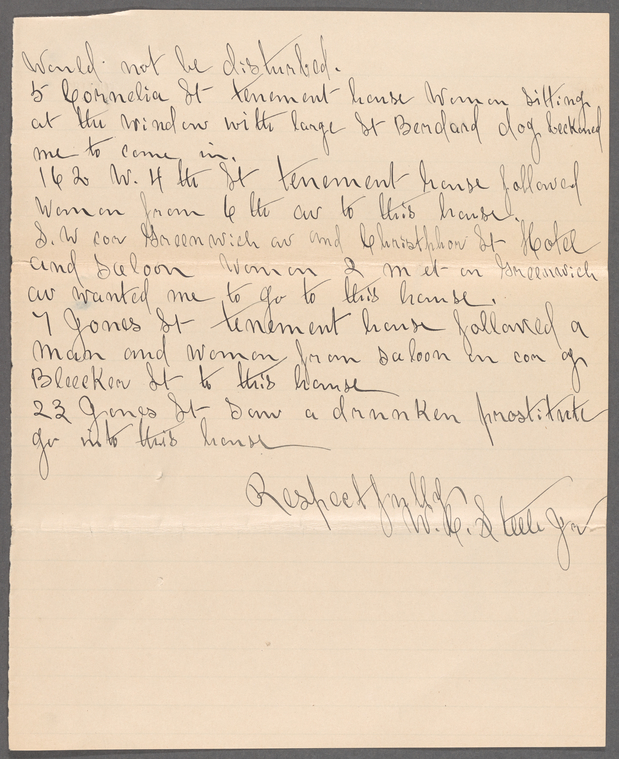 Would not be disturbed.
5 Cornelia St tenement house Woman sitting
at the window with large St Berdard dog beckoned
me to come in.
162 W. 4 th St tenement house followed
Woman from 6 th av to this house.
S. W cor Greenwich av and Christpher St Hotel
and Saloon Woman 2 met on Greenwich
av wanted me to go to this house.
7 Jones St tenement house followed a
man and woman from saloon on cor of
Bleecker St to this house
23 Jones St Saw a drunken prostitute
go into this house
Respectfully
W. C. Steele Jr